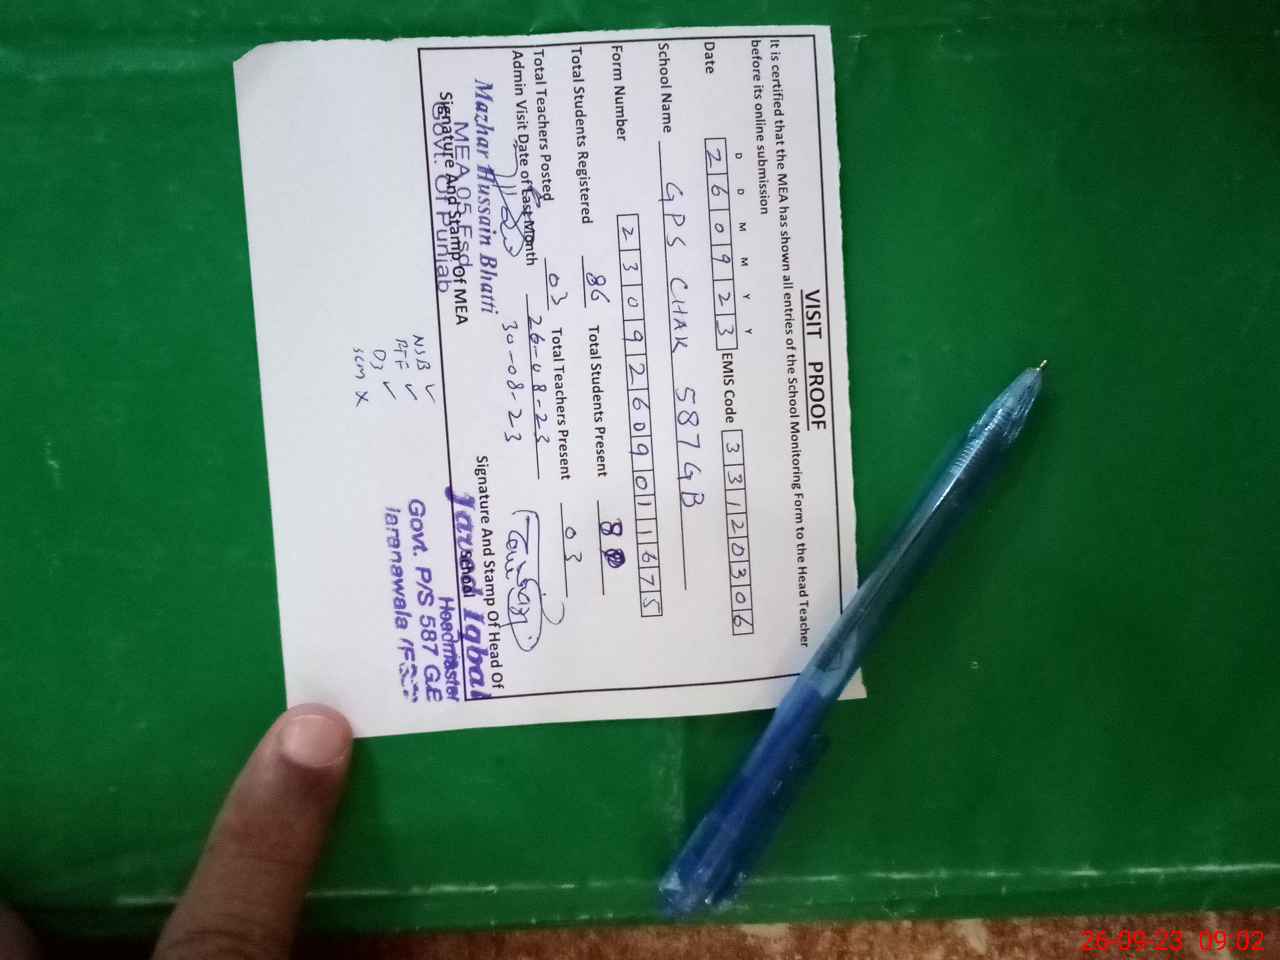 VISIT PROOF
It is certified that the MEA has shown all entries of the School Monitoring Form to the Head Teacher
before its online submission
D D M M Y Y
Date 260923 EMIS Code 33120306
School Name GPS CHAK 587 GB
Form Number 23092609011675
Total Students Registered 86 Total Students Present 8
Total Teachers Posted 03 Total Teachers Present 03
Admin Visit Date of Last Month 26-08-23
30-08-23
Mazhar Hussain Bhatti
Signature And Stamp Of MEA
MEA 05 Fsd
Govt. Of Punjab
Signature And Stamp Of Head Of
School
Iqbal
Headmaster
Govt. P/S 587 G.B
NSB ✓
PTF ✓
D3 ✓
SCM X
26-09-23 09:02